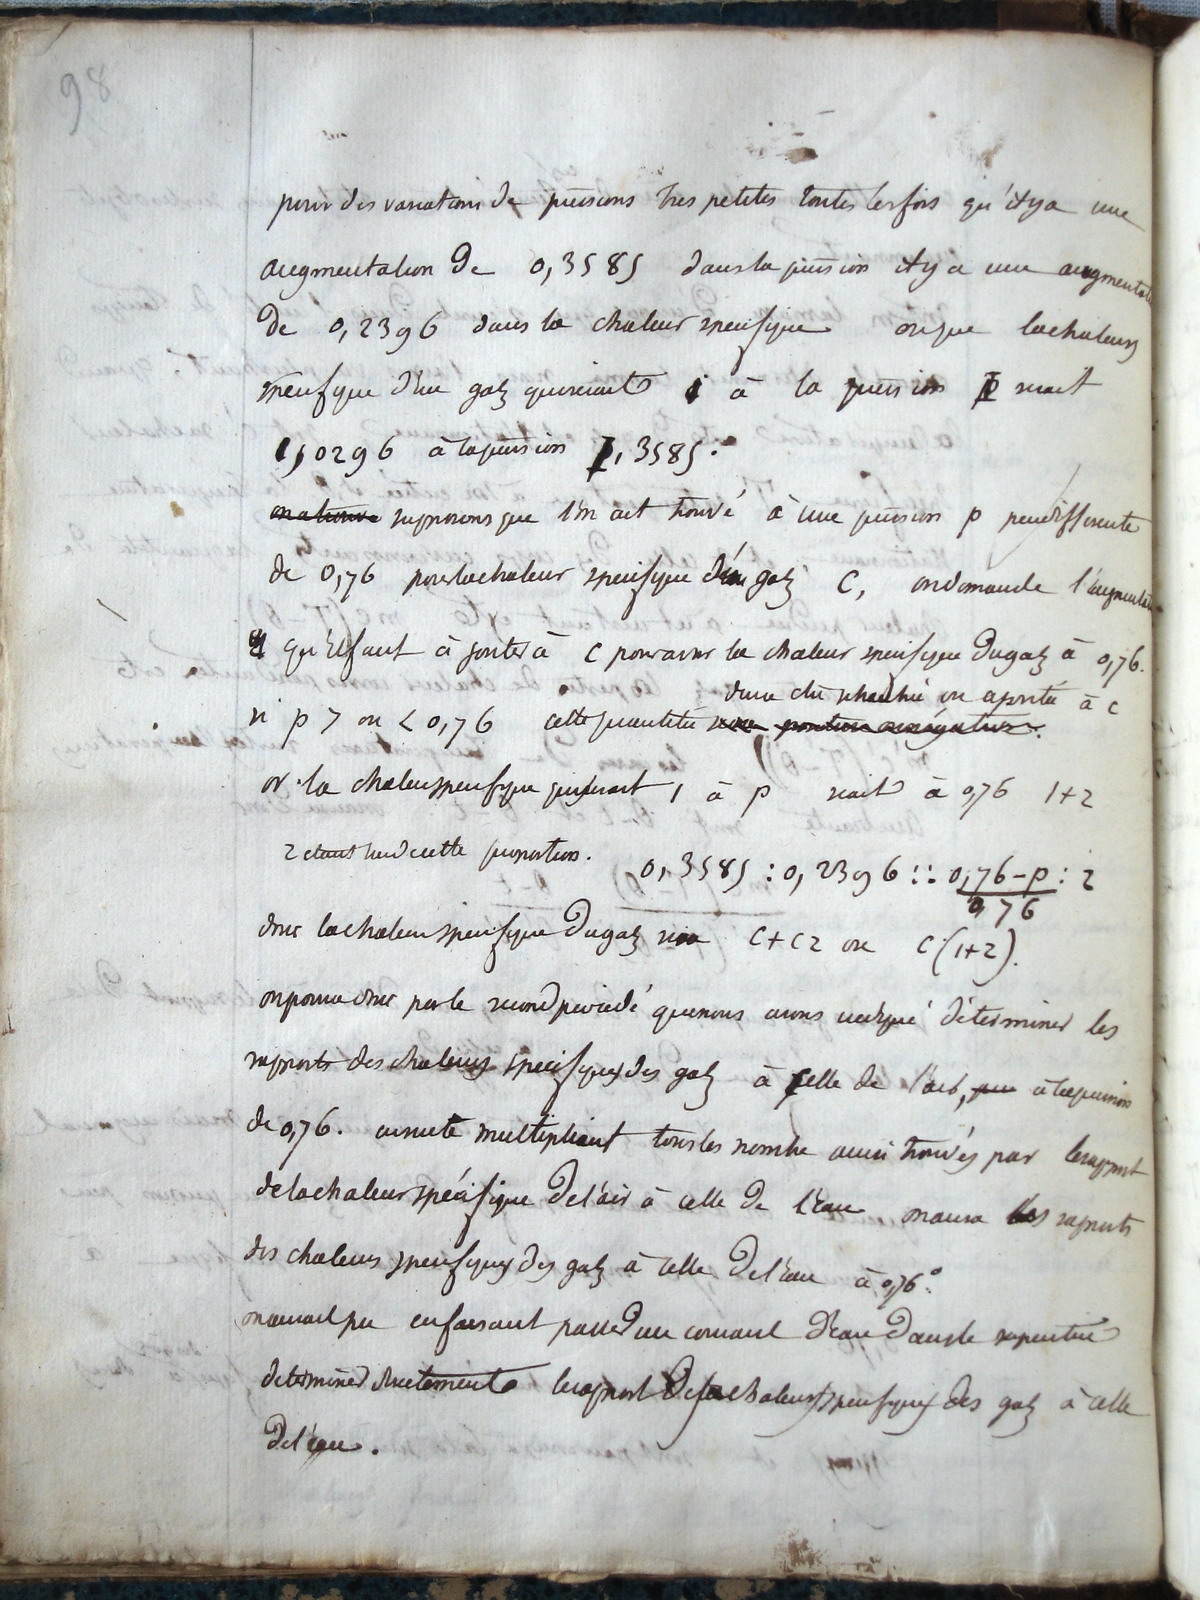 98
pour des variations de pressions tres petites toutes les fois qu'il y a une
augmentation de 0,3585 dans la pression il y a une augmentat
de 0,2396 dans la chaleur specifique on que la chaleur
specifique d'un gaz qui seroit 1 à la pression 1 seroit
1,0296 à la pression 1,3585.
on a trouvé supposons que l'on ait trouvé à une pression p peu differente
de 0,76 pour la chaleur specifique d'un gaz C, on demande l'augmentat
qu'il faut ajouter à C pour avoir la chaleur specifique du gaz à 0,76.
devra être retranchée ou ajoutée à c
si p > ou < 0,76 cette quantité sera positive ou négative.
or la chaleur specifique qui seroit 1 à p seroit à 0,76 1+z
z étant tiré de cette proportion. 0,3585 : 0,2396 :: 0,76-p : z
0,76
donc la chaleur specifique du gaz sera C+Cz ou C(1+z).
on pourra donc par le second procédé que nous avons indiqué déterminer les
rapports des chaleurs specifiques des gaz à celle de l'air, à la pression
de 0,76. ensuite multipliant tous les nombre ainsi trouvés par le rapport
de la chaleur spécifique de l'air à celle de l'eau on aura les rapports
des chaleurs specifiques des gaz à celle de l'eau à 0,76.
on auroit pu en faisant passer un courant d'eau dans le serpentin
determiner directement le rapport de la chaleur specifique des gaz à celle
de l'eau.